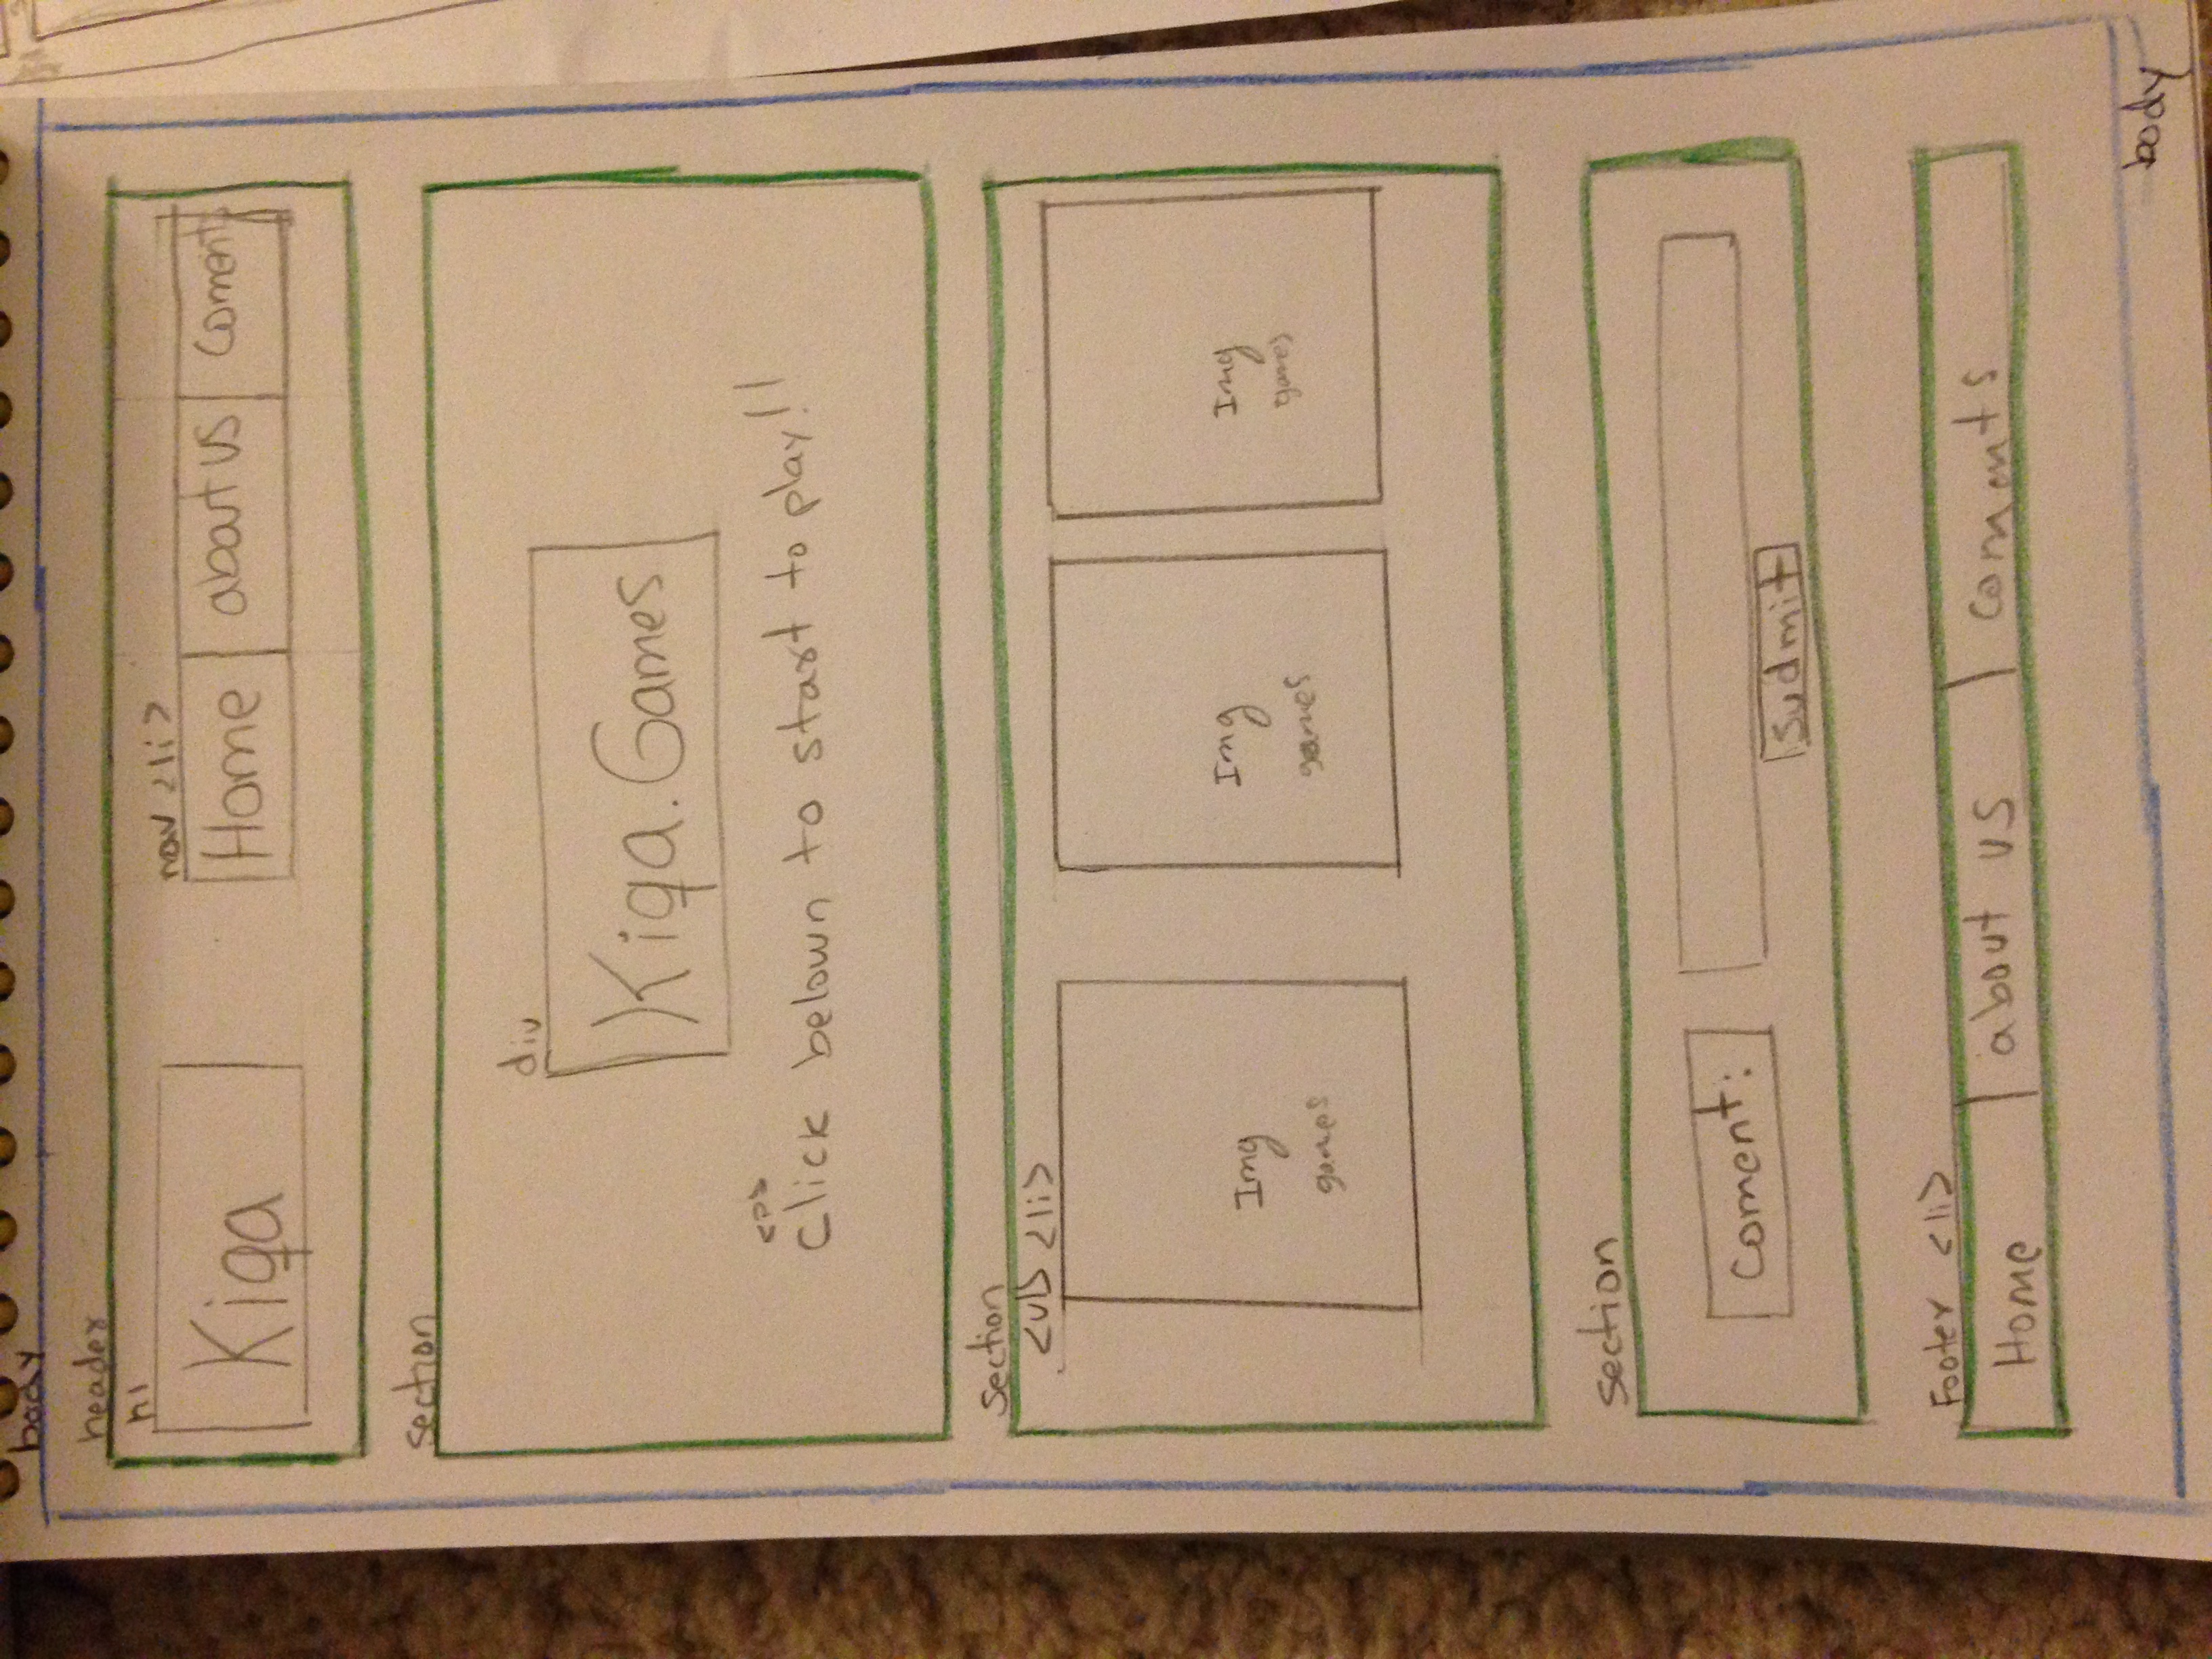 body
header
h1
nav <li>
Kiqa
Home
about us
Coments
section
div
Kiqa.Games
<p>
Click belown to start to play!!
section
<ul> <li>
Img
games
Img
games
Img
games
section
Coment:
Sudmit
Footer <li>
Home
about us
coments
body